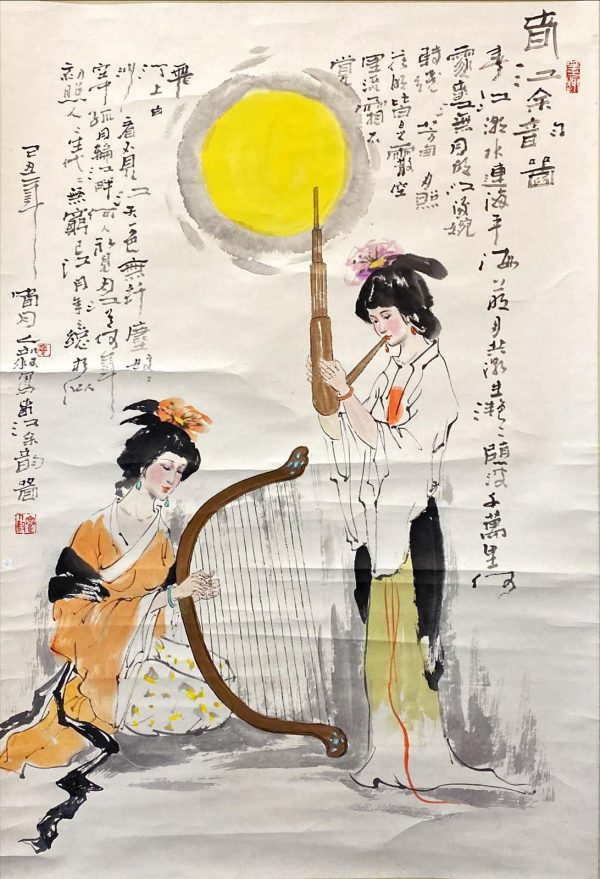 春江余音圖
春江潮水連海平海上明月共潮生灧〻隨波千萬里何
處春江無月明江流婉
轉繞芳甸月照
花林皆是霰空
里流霜不
覺
飛
汀上白
沙看不見江天一色無纖塵皎〻
空中孤月輪江畔何人初見月江月何年
初照人人生代〻無窮已江月年〻總相似
己丑年
月之寫春江余韵圖